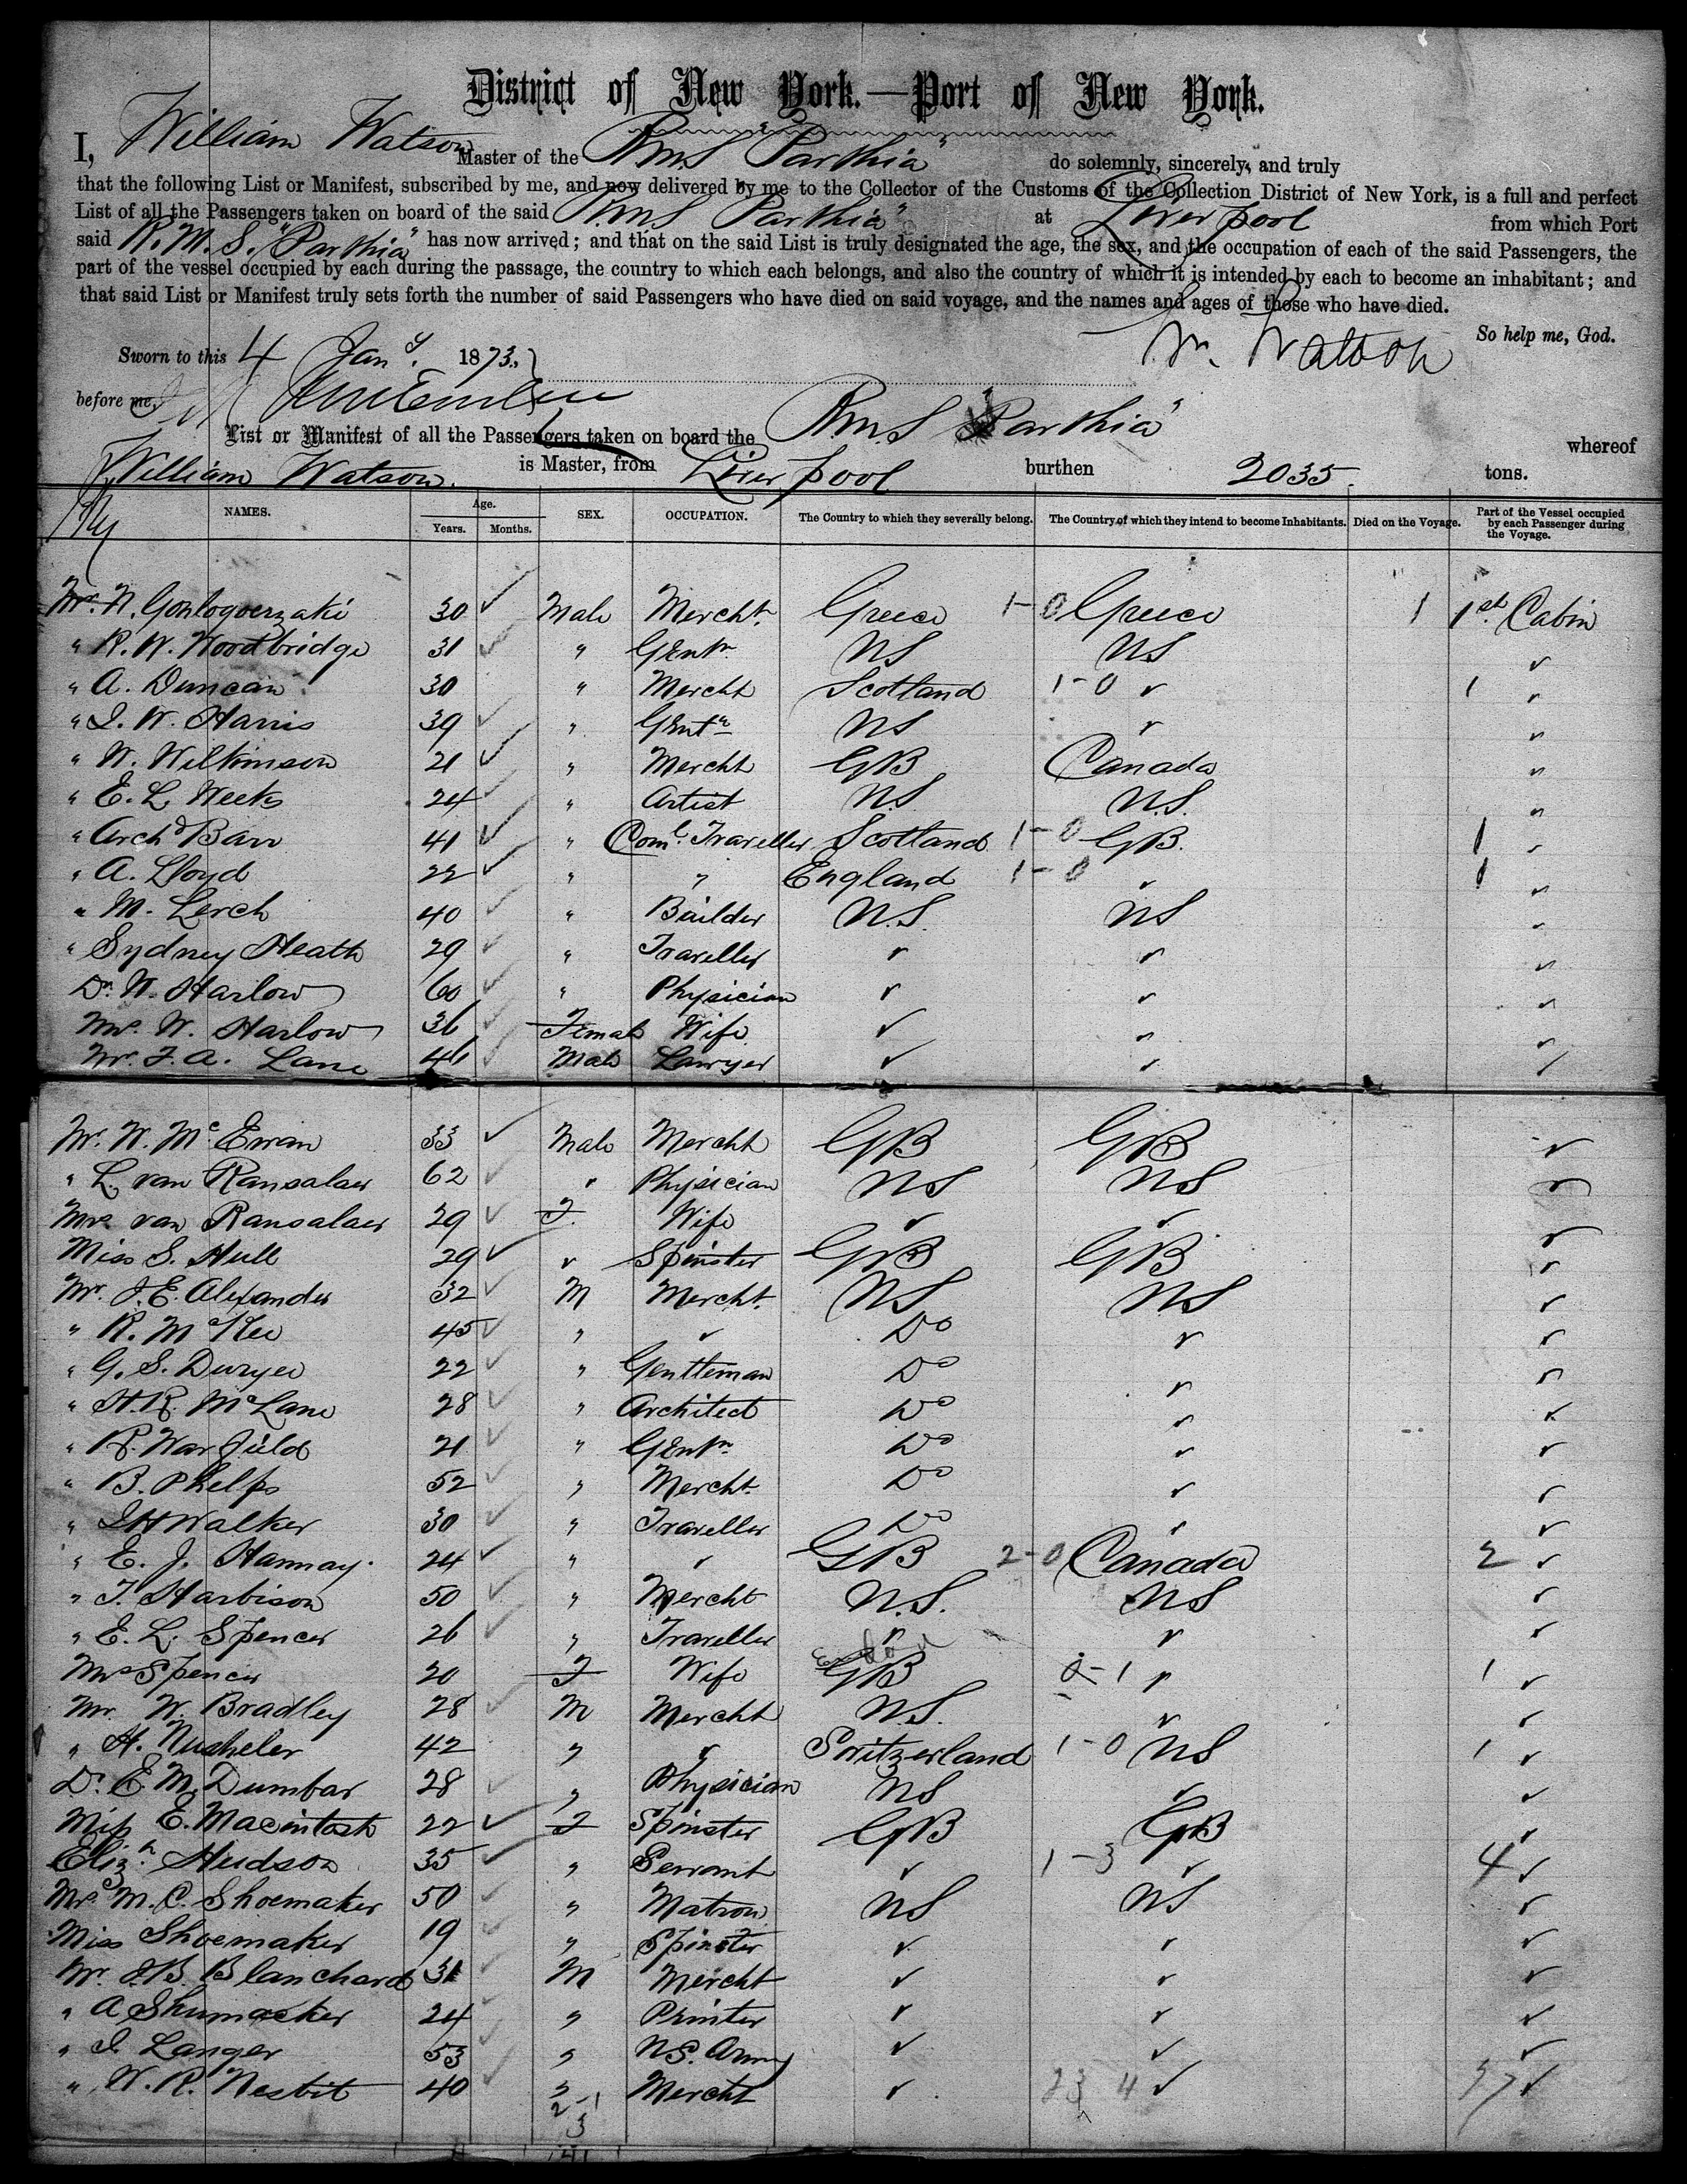 District of New York.—Port of New York.
I, William Watson Master of the RMS "Parthia" do solemnly, sincerely, and truly
that the following List or Manifest, subscribed by me, and now delivered by me to the Collector of the Customs of the Collection District of New York, is a full and perfect
List of all the Passengers taken on board of the said RMS "Parthia" at Liverpool from which Port
said R.M.S. "Parthia" has now arrived; and that on the said List is truly designated the age, the sex, and the occupation of each of the said Passengers, the
part of the vessel occupied by each during the passage, the country to which each belongs, and also the country of which it is intended by each to become an inhabitant; and
that said List or Manifest truly sets forth the number of said Passengers who have died on said voyage, and the names and ages of those who have died.
So help me, God.
Sworn to this 4 Jany. 1873. Wm Watson
before me,
List or Manifest of all the Passengers taken on board the RMS "Parthia" whereof
William Watson. is Master, from Liverpool burthen 2035. tons.
NAMES. Age. Years. Months. SEX. OCCUPATION. The Country to which they severally belong. The Country of which they intend to become Inhabitants. Died on the Voyage. Part of the Vessel occupied by each Passenger during the Voyage.
Mr. N. 30 ✓ Male Mercht. Greece 1-0 Greece 1 1st Cabin
" R. W. Woodbridge 31 ✓ " Gentn. US US ✓
" A. Duncan 30 " Mercht Scotland 1-0 ✓ 1 ✓
" J. W. Harris 39 ✓ " Gentn US ✓ ✓
" W. Wilkinson 21 ✓ " Mercht GB Canada ✓
" E. L. Weeks 24 ✓ " Artist U.S U.S. ✓
" Archd Barr 41 ✓ " Coml. Traveller Scotland 1-0 GB. 1 ✓
" A. Lloyd 22 ✓ " " England 1-0 ✓ 1 ✓
" M. Lerch 40 ✓ " Builder U.S. US ✓
" Sydney Heath 29 ✓ " Traveller ✓ ✓ ✓
Dr. W. Harlow 60 ✓ " Physician ✓ ✓ ✓
Mrs. W. Harlow 36 ✓ Female Wife ✓ ✓ ✓
Mr. F. A. Lane 46 ✓ Male Lawyer ✓ ✓ ✓
Mr. W. McEwan 33 ✓ Male Mercht GB GB ✓
" L. van Ransalaer 62 ✓ ✓ Physician US US ✓
Mrs van Ransalaer 29 ✓ F. Wife ✓ ✓ ✓
Miss S. Hull 29 ✓ ✓ Spinster GB GB ✓
Mr. J. E. Alexander 32 ✓ M Mercht. US US ✓
" R. McKee 45 ✓ " ✓ Do ✓ ✓
" G. S. Duryee 22 ✓ " Gentleman Do ✓ ✓
" H. R. McLane 28 ✓ " Architect Do ✓ ✓
" R. Warfield 21 ✓ " Gentn. Do ✓ ✓
" B. Phelps 52 ✓ " Mercht. Do ✓ ✓
" J H Walker 30 ✓ " Traveller Do ✓ ✓
" E. J. Hannay. 24 ✓ " ✓ GB 2-0 Canada 2 ✓
" T. Harbison 50 ✓ " Mercht U.S. US ✓
" E. L. Spencer 26 ✓ " Traveller ✓ ✓ ✓
Mrs Spencer 20 F Wife GB 0-1 ✓ 1 ✓
Mr. W. Bradley 28 ✓ M Mercht U.S. ✓ ✓
" H. Nusheler 42 " ✓ Switzerland 1-0 US 1 ✓
Dr. E. M. Dumbar 28 ✓ " Physician US ✓ ✓
Miss E. Macintosh 22 ✓ F Spinster GB GB ✓
Elizh. Hudson 35 ✓ " Servant ✓ 1-3 ✓ 4 ✓
Mrs. M. C. Shoemaker 50 ✓ " Matron US US ✓
Miss Shoemaker 19 ✓ " Spinster ✓ ✓ ✓
Mr. J. B. Blanchard 31 ✓ M Mercht ✓ ✓ ✓
" A Shumacker 24 ✓ " Printer ✓ ✓ ✓
" J. Langer 53 ✓ " US. Army ✓ ✓ ✓
" W. R. Nesbit 40 ✓ " Mercht ✓ 23 4 ✓ 27 ✓
2-1
3